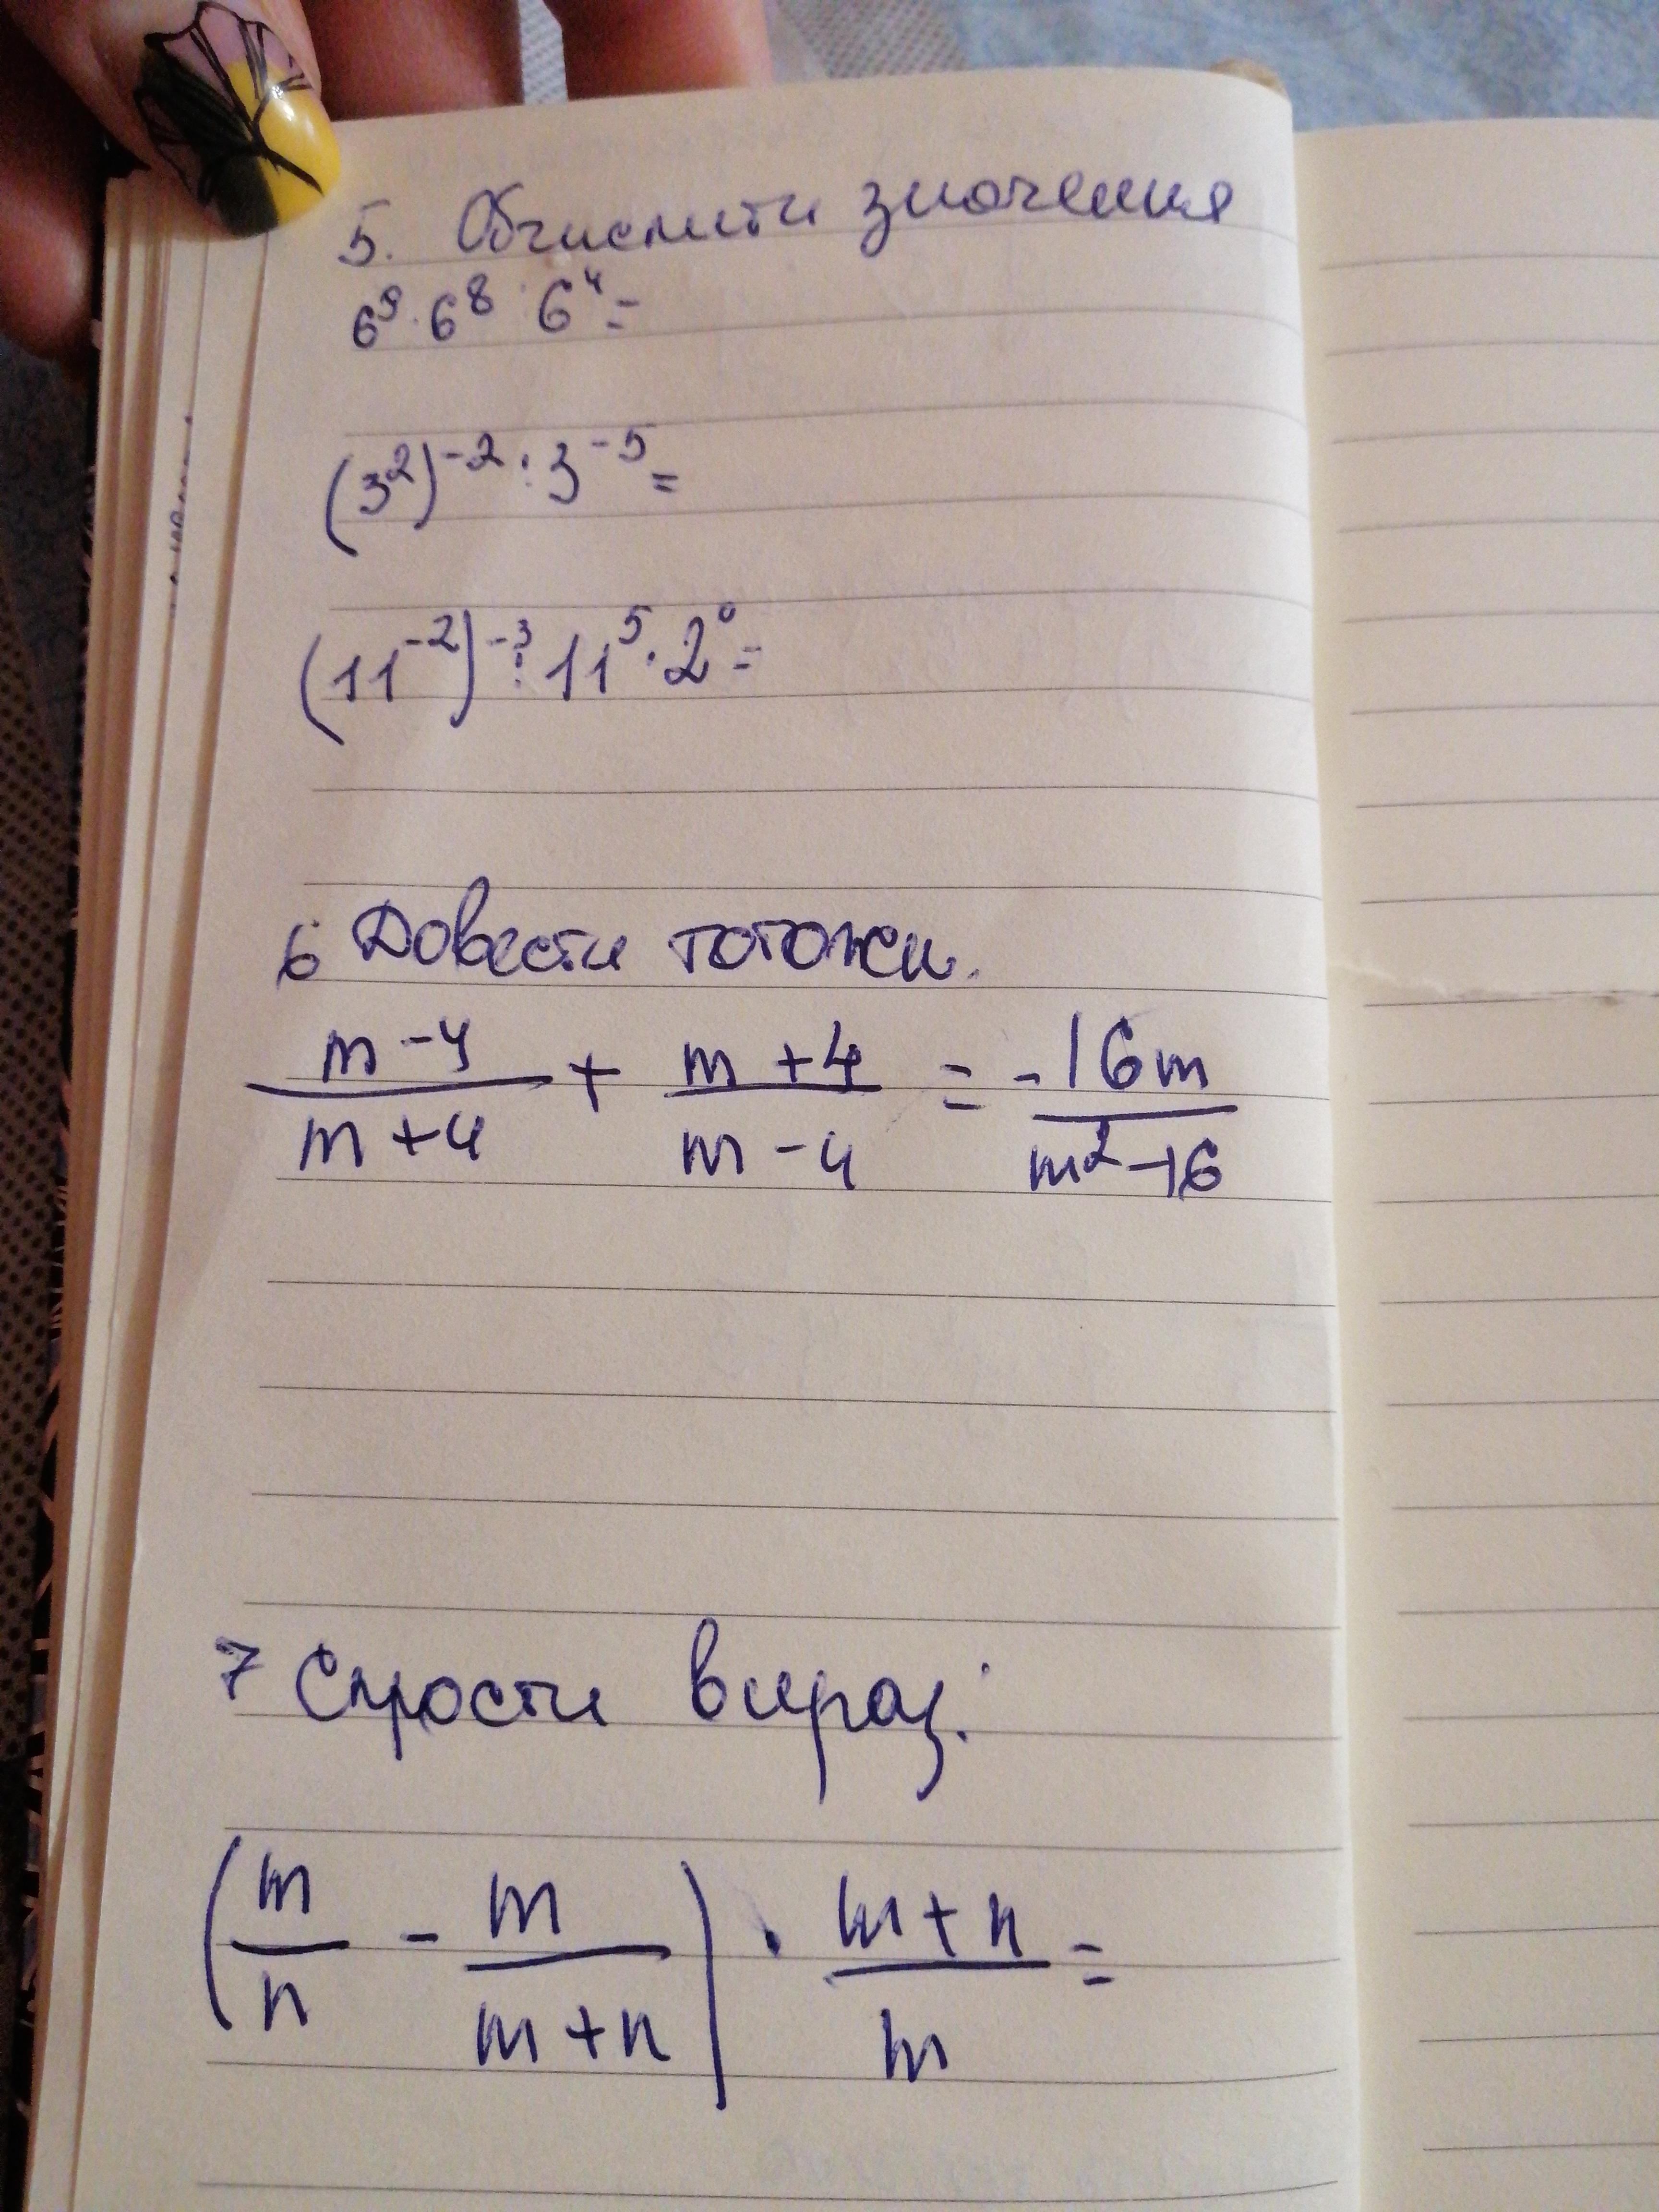 5. Обчислити значення
6⁹ · 6⁸ : 6⁴ =
(3²)⁻² : 3⁻⁵ =
(11⁻²)⁻³ : 11⁵ · 2⁰ =
6 Довести тотожн.
(m-4)/(m+4) + (m+4)/(m-4) = -16m/(m²-16)
7 Спрости вираз:
(m/n - m/(m+n)) · (m+n)/m =